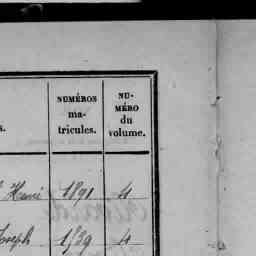 NUMÉROS
ma-
tricules.
NU-
MÉRO
du
volume.
s.
Henri 1891 4
Joseph 1539 4